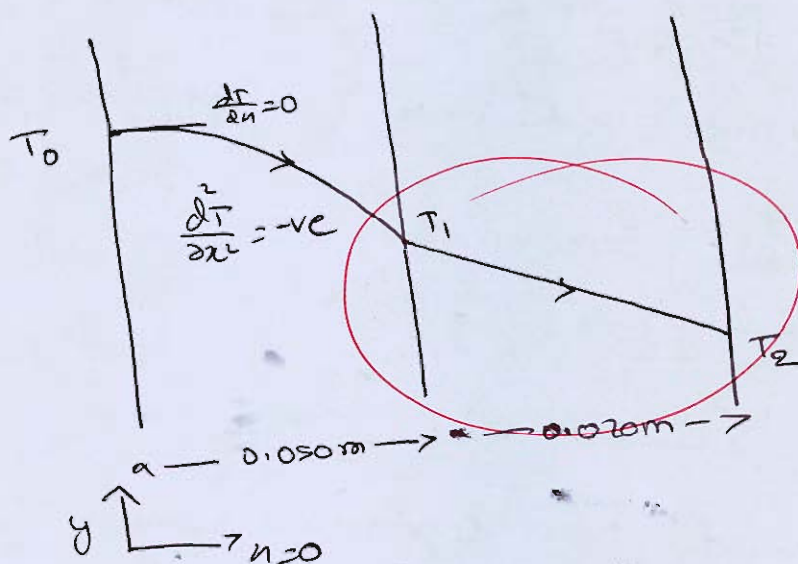 dT/dx=0
T₀
d²T/dx² = -ve
T₁
T₂
0.050m
0.020m
y
x=0